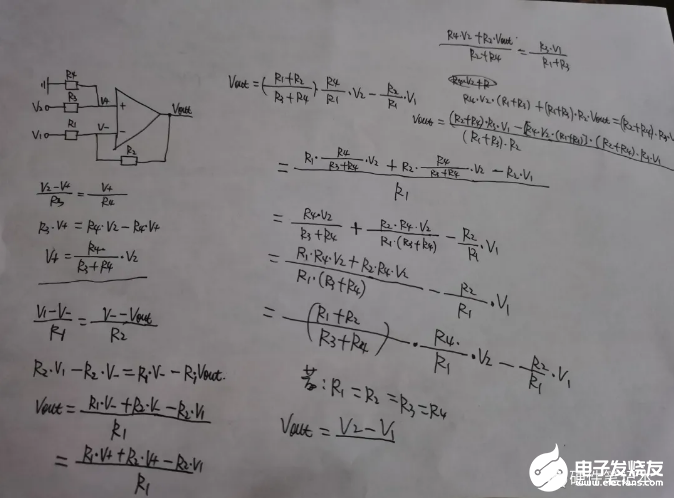 R4
V2 R3 V+ +
V1 R1 V- -
R2
Vout
(V2-V+)/R3 = V+/R4
R3·V+ = R4·V2-R4·V+
V+ = R4/(R3+R4)·V2
(V1-V-)/R1 = (V--Vout)/R2
R2·V1-R2·V- = R1·V--R1Vout.
Vout = (R1·V-+R2·V--R2·V1)/R1
= (R1·V++R2·V+-R2·V1)/R1
(R4·V2+R2·Vout)/(R2+R4) = (R3·V1)/(R1+R3)
R4·V2·(R1+R3)+(R1+R3)·R2·Vout=(R2+R4)·R3·V1
Vout=((R1+R2)/(R3+R4))·R4/R1·V2-R2/R1·V1
= (R1·R4/(R3+R4)·V2+R2·R4/(R3+R4)·V2-R2·V1)/R1
= R4·V2/(R3+R4)+R2·R4·V2/(R1·(R3+R4))-R2/R1·V1
= (R1·R4·V2+R2·R4·V2)/(R1·(R3+R4))-R2/R1·V1
= ((R1+R2)/(R3+R4))·R4/R1·V2-R2/R1·V1
若:R1=R2=R3=R4
Vout=V2-V1
电子发烧友
www.elecfans.com